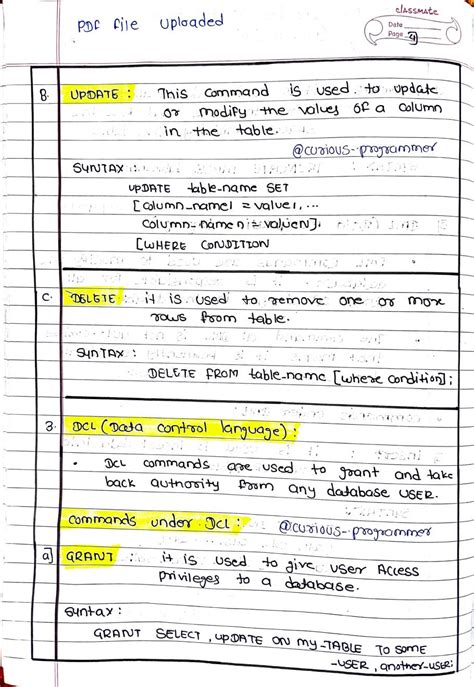 classmate
PDF file Uploaded
Date
Page 9
B. UPDATE : This command is used to update
or modify the values of a column
in the table.
@curious-programmer
SYNTAX :
UPDATE table-name SET
[column_name1 = value1, ...
column_name n = valueN];
[WHERE CONDITION
C. DELETE : it is used to remove one or more
rows from table.
SYNTAX :
DELETE FROM table-name [where condition];
3. DCL (Data control language) :
• DCL commands are used to grant and take
back authority from any database USER.
commands under DCL : @curious-programmer
a] GRANT : it is used to give user Access
privileges to a database.
syntax :
GRANT SELECT, UPDATE ON MY-TABLE TO some
-USER, another-USER;